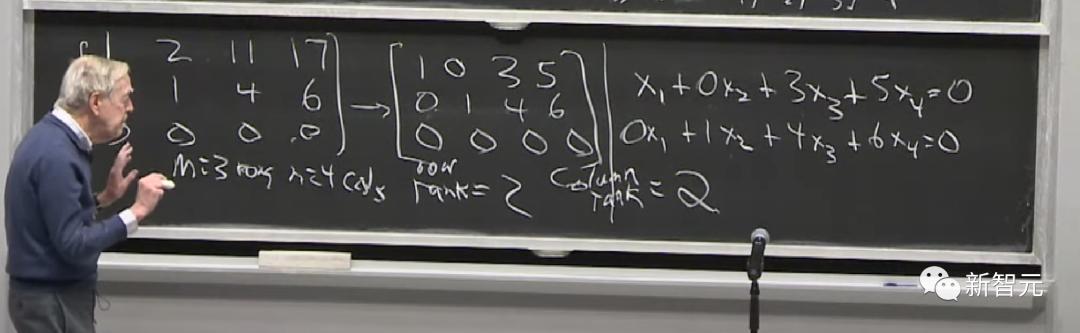 1 2 11 17
1 4 6
0 0 0 0
→
1 0 3 5
0 1 4 6
0 0 0 0
x₁+0x₂+3x₃+5x₄=0
0x₁+1x₂+4x₃+6x₄=0
m=3 rows n=4 cols
row rank=2
Column rank=2
新智元